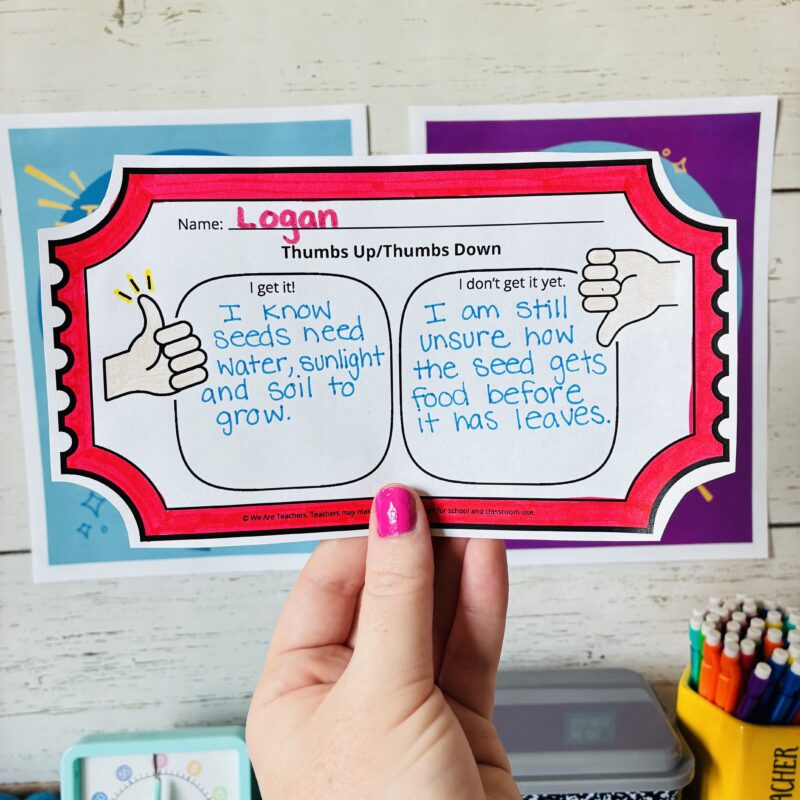 Name: Logan
Thumbs Up/Thumbs Down
I get it!
I know
seeds need
water, sunlight
and soil to
grow.
I don't get it yet.
I am still
unsure how
the seed gets
food before
it has leaves.
© We Are Teachers. Teachers may mak for school and classroom use.
ACHER